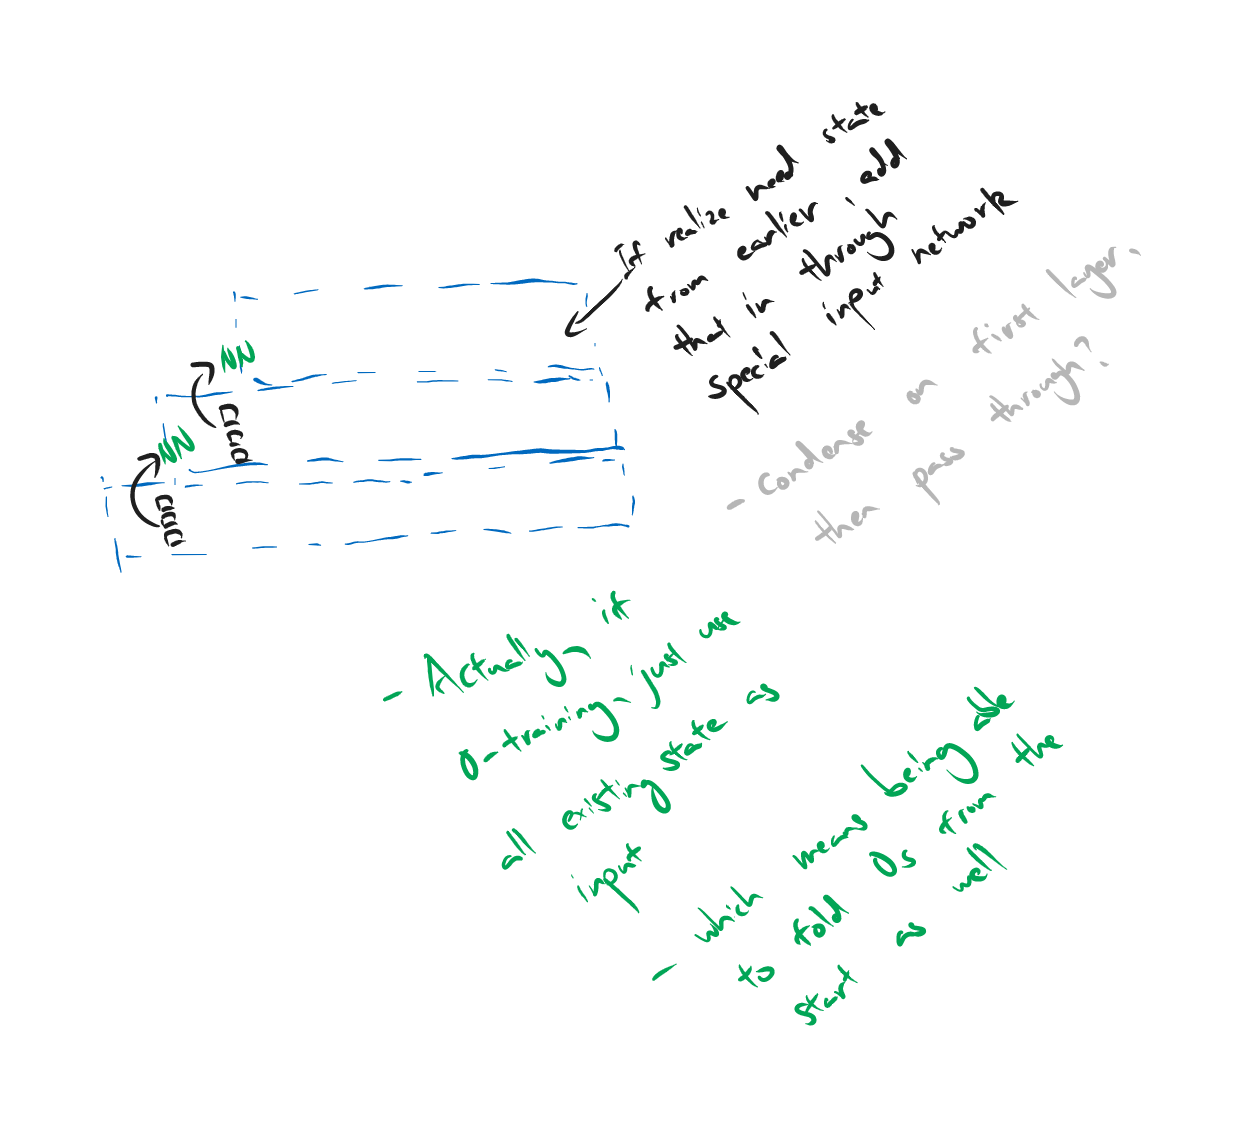 If realize need state
from earlier, add
that in through
special input network
- Condense on first layer,
then pass through?
NN
NN
- Actually, if
0-training, just use
all existing state as
input
- which means being able
to fold 0s from the
start as well